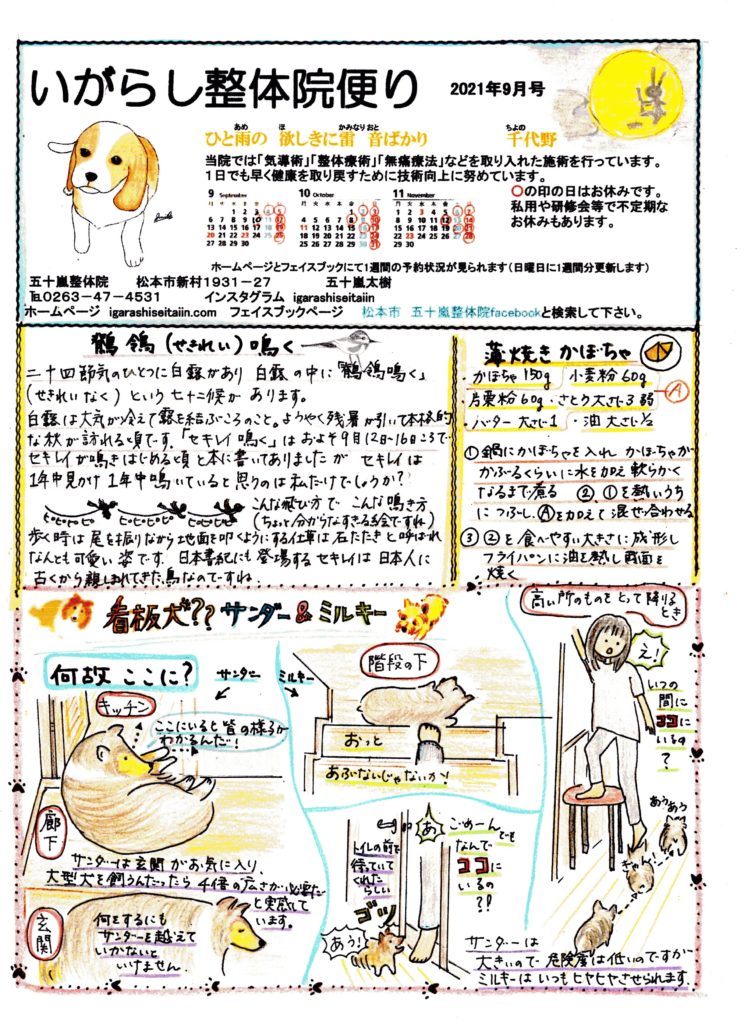 いがらし整体院便り
2021年9月号
ひと雨の 欲しきに雷 音ばかり 千代野
当院では「気導術」「整体療術」「無痛療法」などを取り入れた施術を行っています。
1日でも早く健康を取り戻すために技術向上に努めています。
9 September
10 October
11 November
○の印の日はお休みです。
私用や研修会等で不定期な
お休みもあります。
ホームページとフェイスブックにて1週間の予約状況が見られます(日曜日に1週間分更新します)
五十嵐整体院 松本市新村1931-27 五十嵐太樹
℡0263-47-4531 インスタグラム igarashiseitaiin
ホームページ igarashiseitaiin.com フェイスブックページ 松本市 五十嵐整体院facebookと検索して下さい。
鶺鴒(せきれい)鳴く
二十四節気のひとつに白露があり 白露の中に「鶺鴒鳴く」
(せきれいなく)という七十二候が あります。
白露は大気が冷えて露を結ぶころのこと。ようやく残暑が引いて本格的
な秋が訪れる頃です。「セキレイ鳴く」は およそ9月12日~16日ころで
セキレイが鳴きはじめる頃と本に書いてありましたが セキレイは
1年中見かけ 1年中鳴いていると思うのは私だけでしょうか?
こんな飛び方で こんな鳴き方
(ちょっと分からなすぎる絵ですね)
歩く時は 尾を振りながら地面を叩くようにする仕草は石たたきと呼ばれ
なんとも可愛い姿です. 日本書紀にも登場するセキレイは 日本人に
古くから親しまれてきた鳥なのですね.
薄焼きかぼちゃ
・かぼちゃ150g ・小麦粉60g
・片栗粉60g ・さとう大さじ3弱
Ⓐ
・バター大さじ1 ・油 大さじ1/2
①鍋にかぼちゃを入れ かぼちゃが
かぶるくらいに水を加え 軟らかく
なるまで煮る ②①を熱いうち
につぶし、Ⓐを加えて混ぜ合わせる
③②を食べやすい大きさに成形し
フライパンに油を熱し両面を
焼く
看板犬?? サンダー & ミルキー
何故 ここに?
サンダー
ミルキー
キッチン
ここにいると皆の様子が
わかるんだ!
廊下
サンダーは玄関がお気に入り、
大型犬を飼うんだったら
と実感して
います。
玄関
何をするにも
サンダーを越えて
いかないと
いけません.
階段の下
おっと
あぶないじゃないか!
トイレの前で
待っていて
くれた
らしい
あ
ごめーんでも
なんで
ココに
いるの
?!
ゴッ
あう!
高い所のものをとって降りる
とき
え!
いつの
間に
ココに
いるの
?
あうあう
きゃん!
サンダーは
大きいので 危険度は低いのですが
ミルキーは いつもヒヤヒヤさせられます.